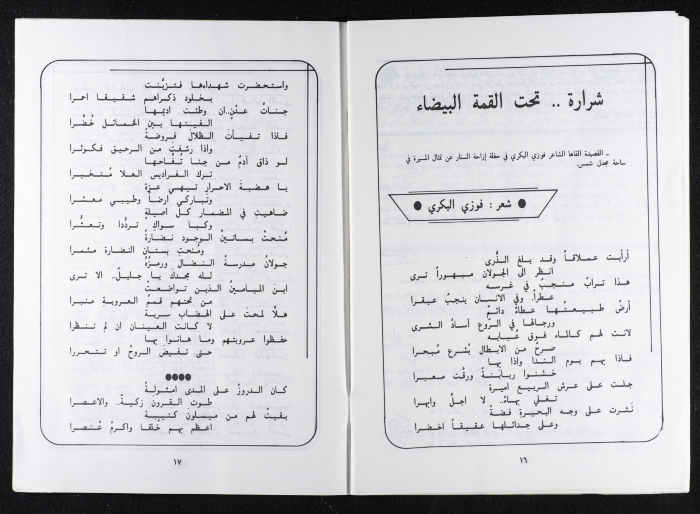 شرارة .. تحت القمة البيضاء
ـ القصيدة القاها الشاعر فوزي البكري في حفلة إزاحة الستار عن تمثال المسيرة في
ساحة مجدل شمس.
● شعر : فوزي البكري ●
أرأيت عملاقاً وقد بلغ الذُّرى
انظر الى الجولان مبهوراً ترى
هذا ترابٌ منجبٌ في غرسه
عطراً. وفي الانسان ينجبُ عبقرا
أرضُ طبيعتُها عطاءٌ دائمٌ
ورجالها في الرّوع أسادُ الشرى
لانت لهم كالماء فوق عبابه
صرحٌ من الابطال يُشرع مُبحرا
فاذا بهم يوم الندا واذا بها
خشنوا ربابنةً ورقّت معبرا
جلت على عرش الربيع اميرة
تغلي بهاءً.. لا اجلّ وابهرا
نَثرت على وجه البحيرة فضةً
وعلى جدائلها عقيقاً اخضرا
١٦
واستحضرت شهداءها فتزيّنت
بخلود ذكراهم شقيقا احمرا
جناتُ عدنٍ..ان وطئت اديمها
الفيتها بين الخمائل خُضَّرا
فاذا تفيأتَ الظلالَ فروضةً
واذا رشفتَ من الرحيق فكوثرا
لو ذاق آدمُ من جنا تفّاحها
ترك الفراديس العلا متخيرا
يا هضبة الاحرار تيهي عزة
وتباركي ارضاً وطيبي معشرا
ضاهيتِ في المضمار كل اصيلةٍ
وكبا سواكِ تردّدا وتعثّرا
مُنحتْ بساتينُ الوجودِ نضارةً
ومُنحتِ بستان النضارة مثمرا
جولانُ مدرسةُ النضال ورمزُهُ
لله مجدكَ يا جليلُ.. الا ترى
اينَ الميامينُ الذين تواضعتْ
من تحتهم قممُ العروبةِ منبرا
هلّا لمحتَ على الهضاب سريةً
لا كانت العينان ان لم تنظرا
حفظوا عروبتهم وما هانوا بها
حتى تفيضَ الروحُ او تتحررا
●●●●
كان الدروزُ على المدى امثولةً
طوت القرونَ زكيةً.. والاعصرا
بقيتْ لهم من ميسلونَ كتيبةٌ
اعظم بهم خُلقا واكرمْ عُنصرا
١٧